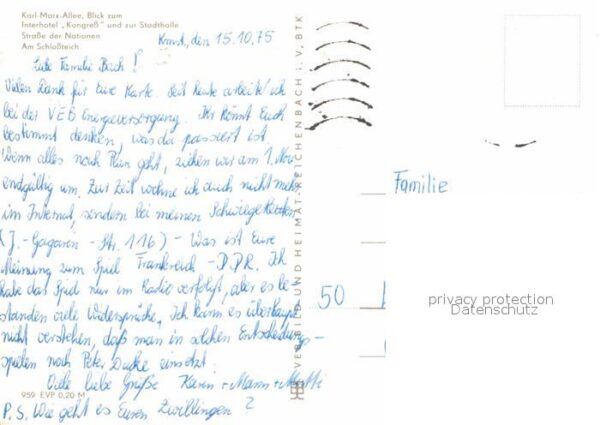 Karl-Marx-Allee, Blick zum
Interhotel „Kongreß" und zur Stadthalle
Straße der Nationen
Am Schloßteich
Kmst, den 15.10.75
Liebe Familie Bach!
Vielen Dank für Eure Karte. Seit heute arbeite ich
bei der VEB Energieversorgung. Ihr könnt Euch
bestimmt denken, was da passiert ist.
Wenn alles nach Plan geht, ziehen wir am 1. Nov.
endgültig um. Zur Zeit wohne ich auch nicht mehr
im Internat, sondern bei meinen Schwiegereltern
(J.-Gagarin-Str. 116) - Was ist Eure
Meinung zum Spiel Frankreich - DDR. Ich
habe das Spiel nur im Radio verfolgt, aber es be-
standen viele Widersprüche. Ich kann es überhaupt
nicht verstehen, daß man in solchen Entscheidungs-
spielen noch Peter Ducke einsetzt.
Viele liebe Grüße Karen + Mann +
959 EVP 0,20 M
P.S. Wie geht es Euren Zwillingen?
VEB BILD UND HEIMAT REICHENBACH i. V., BTK
Familie
50
privacy protection
Datenschutz